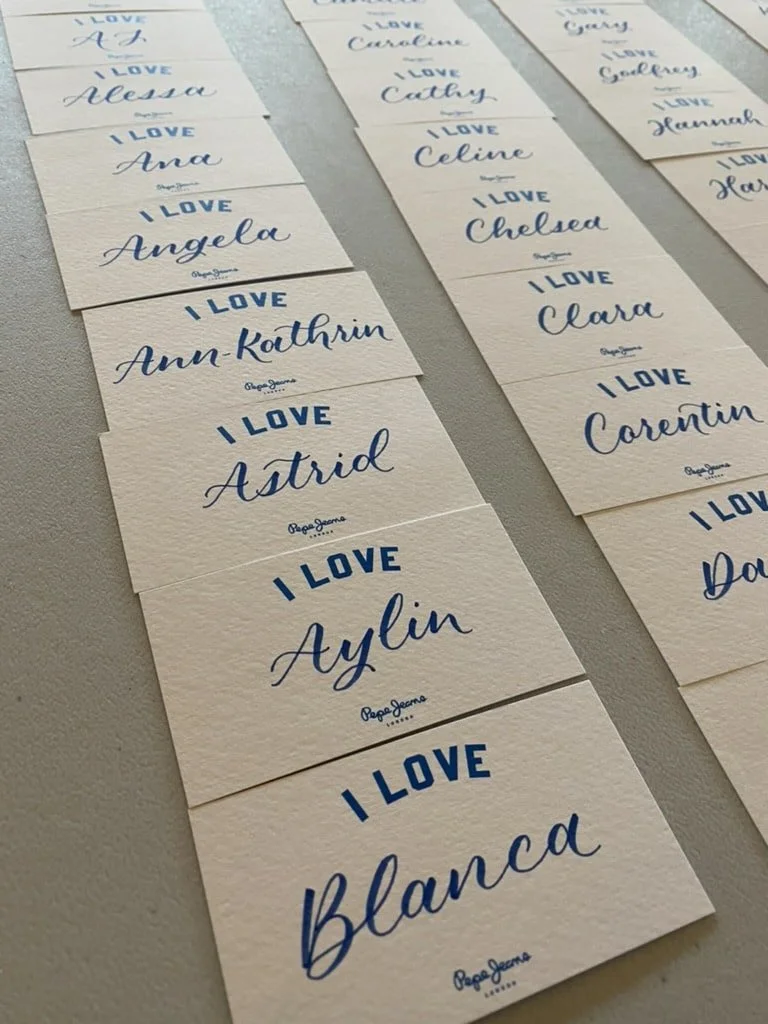 I LOVE
A J
I LOVE
Alessa
I LOVE
Ana
Pepe Jeans
I LOVE
Angela
Pepe Jeans
LONDON
I LOVE
Ann-Kathrin
Pepe Jeans
LONDON
I LOVE
Astrid
Pepe Jeans
LONDON
I LOVE
Aylin
Pepe Jeans
LONDON
I LOVE
Blanca
Pepe Jeans
LONDON
I LOVE
Caroline
I LOVE
Cathy
I LOVE
Celine
Pepe Jeans
I LOVE
Chelsea
Pepe Jeans
I LOVE
Clara
Pepe Jeans
LONDON
I LOVE
Corentin
Pepe Jeans
LONDON
I LOV
Da
Gary
I LOVE
Godfrey
I LOVE
Hannah
I LOV
Har